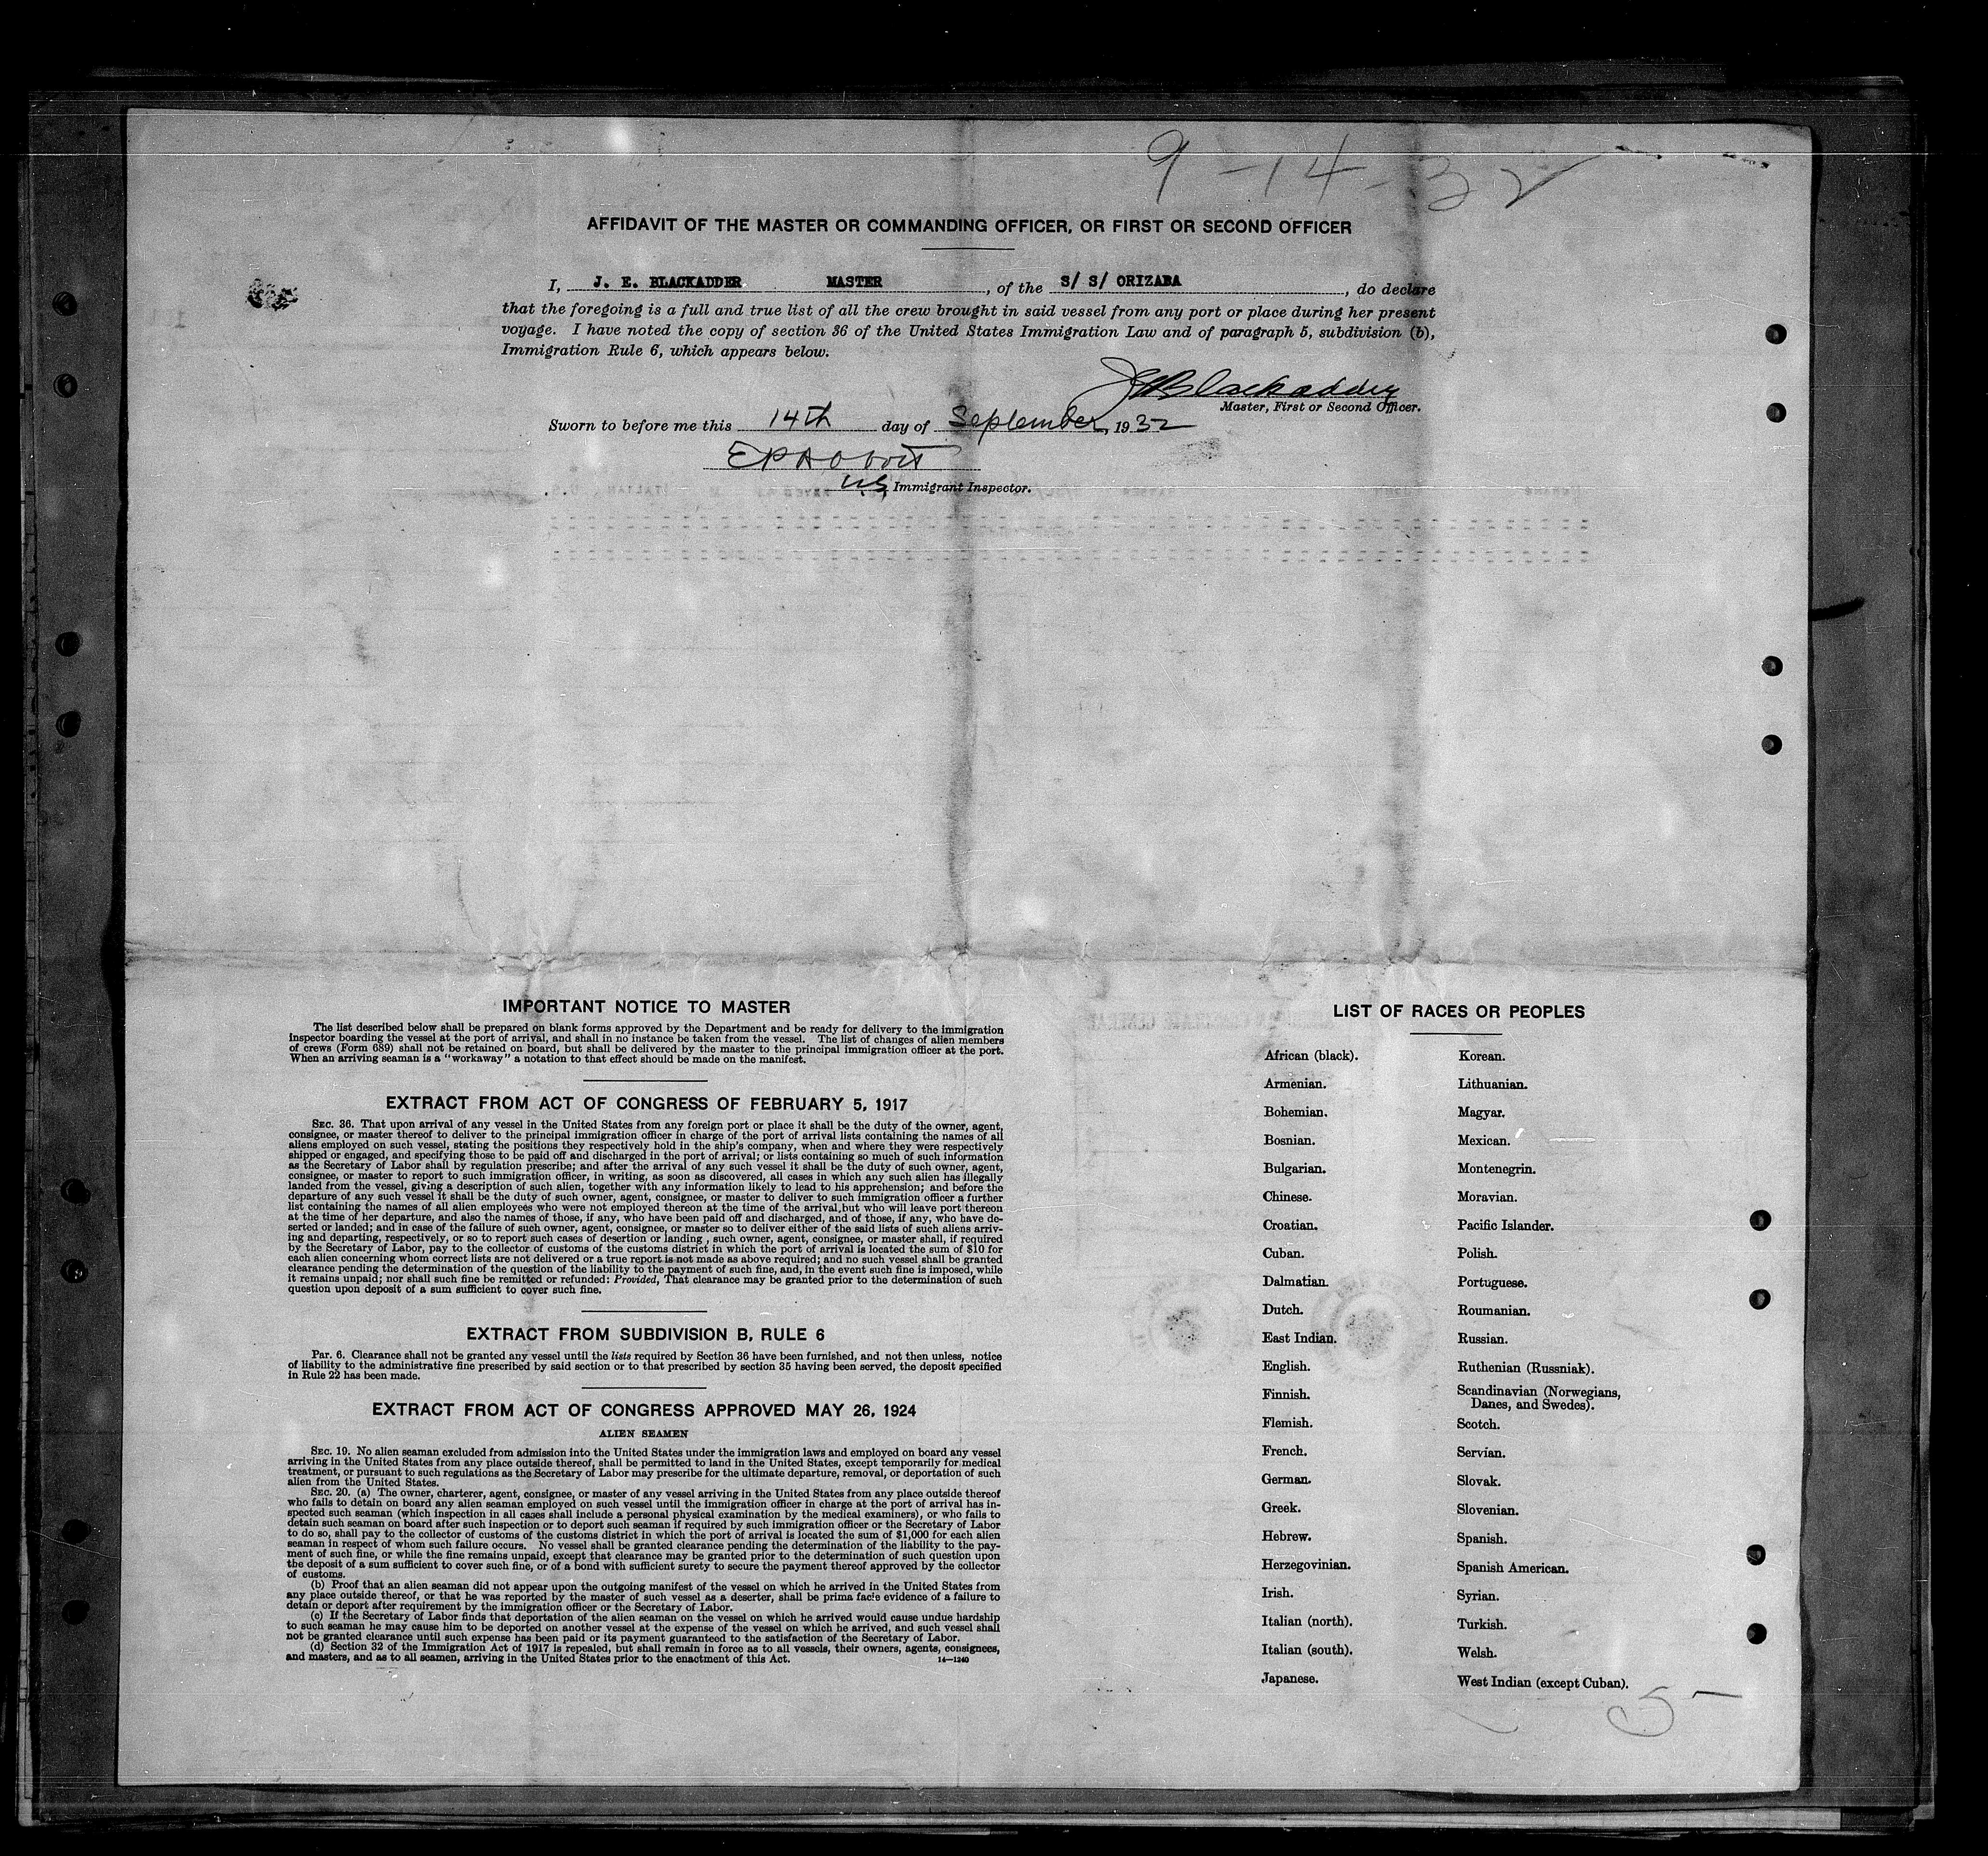 9-14-32
AFFIDAVIT OF THE MASTER OR COMMANDING OFFICER, OR FIRST OR SECOND OFFICER
I, J. E. BLACKADDER MASTER, of the S/ S/ ORIZABA, do declare
that the foregoing is a full and true list of all the crew brought in said vessel from any port or place during her present
voyage. I have noted the copy of section 36 of the United States Immigration Law and of paragraph 5, subdivision (b),
Immigration Rule 6, which appears below.
J E Blackadder
Master, First or Second Officer.
Sworn to before me this 14th day of September, 1932
US Immigrant Inspector.
IMPORTANT NOTICE TO MASTER
The list described below shall be prepared on blank forms approved by the Department and be ready for delivery to the immigration
inspector boarding the vessel at the port of arrival, and shall in no instance be taken from the vessel. The list of changes of alien members
of crews (Form 689) shall not be retained on board, but shall be delivered by the master to the principal immigration officer at the port.
When an arriving seaman is a "workaway" a notation to that effect should be made on the manifest.
EXTRACT FROM ACT OF CONGRESS OF FEBRUARY 5, 1917
SEC. 36. That upon arrival of any vessel in the United States from any foreign port or place it shall be the duty of the owner, agent,
consignee, or master thereof to deliver to the principal immigration officer in charge of the port of arrival lists containing the names of all
aliens employed on such vessel, stating the positions they respectively hold in the ship's company, when and where they were respectively
shipped or engaged, and specifying those to be paid off and discharged in the port of arrival; or lists containing so much of such information
as the Secretary of Labor shall by regulation prescribe; and after the arrival of any such vessel it shall be the duty of such owner, agent,
consignee, or master to report to such immigration officer, in writing, as soon as discovered, all cases in which any such alien has illegally
landed from the vessel, giving a description of such alien, together with any information likely to lead to his apprehension; and before the
departure of any such vessel it shall be the duty of such owner, agent, consignee, or master to deliver to such immigration officer a further
list containing the names of all alien employees who were not employed thereon at the time of the arrival, but who will leave port thereon
at the time of her departure, and also the names of those, if any, who have been paid off and discharged, and of those, if any, who have de-
serted or landed; and in case of the failure of such owner, agent, consignee, or master so to deliver either of the said lists of such aliens arriv-
ing and departing, respectively, or so to report such cases of desertion or landing , such owner, agent, consignee, or master shall, if required
by the Secretary of Labor, pay to the collector of customs of the customs district in which the port of arrival is located the sum of $10 for
each alien concerning whom correct lists are not delivered or a true report is not made as above required; and no such vessel shall be granted
clearance pending the determination of the question of the liability to the payment of such fine, and, in the event such fine is imposed, while
it remains unpaid; nor shall such fine be remitted or refunded: Provided, That clearance may be granted prior to the determination of such
question upon deposit of a sum sufficient to cover such fine.
EXTRACT FROM SUBDIVISION B, RULE 6
PAR. 6. Clearance shall not be granted any vessel until the lists required by Section 36 have been furnished, and not then unless, notice
of liability to the administrative fine prescribed by said section or to that prescribed by section 35 having been served, the deposit specified
in Rule 22 has been made.
EXTRACT FROM ACT OF CONGRESS APPROVED MAY 26, 1924
ALIEN SEAMEN
SEC. 19. No alien seaman excluded from admission into the United States under the immigration laws and employed on board any vessel
arriving in the United States from any place outside thereof, shall be permitted to land in the United States, except temporarily for medical
treatment, or pursuant to such regulations as the Secretary of Labor may prescribe for the ultimate departure, removal, or deportation of such
alien from the United States.
SEC. 20. (a) The owner, charterer, agent, consignee, or master of any vessel arriving in the United States from any place outside thereof
who fails to detain on board any alien seaman employed on such vessel until the immigration officer in charge at the port of arrival has in-
spected such seaman (which inspection in all cases shall include a personal physical examination by the medical examiners), or who fails to
detain such seaman on board after such inspection or to deport such seaman if required by such immigration officer or the Secretary of Labor
to do so, shall pay to the collector of customs of the customs district in which the port of arrival is located the sum of $1,000 for each alien
seaman in respect of whom such failure occurs. No vessel shall be granted clearance pending the determination of the liability to the pay-
ment of such fine, or while the fine remains unpaid, except that clearance may be granted prior to the determination of such question upon
the deposit of a sum sufficient to cover such fine, or of a bond with sufficient surety to secure the payment thereof approved by the collector
of customs.
(b) Proof that an alien seaman did not appear upon the outgoing manifest of the vessel on which he arrived in the United States from
any place outside thereof, or that he was reported by the master of such vessel as a deserter, shall be prima facie evidence of a failure to
detain or deport after requirement by the immigration officer or the Secretary of Labor.
(c) If the Secretary of Labor finds that deportation of the alien seaman on the vessel on which he arrived would cause undue hardship
to such seaman he may cause him to be deported on another vessel at the expense of the vessel on which he arrived, and such vessel shall
not be granted clearance until such expense has been paid or its payment guaranteed to the satisfaction of the Secretary of Labor.
(d) Section 32 of the Immigration Act of 1917 is repealed, but shall remain in force as to all vessels, their owners, agents, consignees,
and masters, and as to all seamen, arriving in the United States prior to the enactment of this Act.
14—1240
LIST OF RACES OR PEOPLES
African (black).
Armenian.
Bohemian.
Bosnian.
Bulgarian.
Chinese.
Croatian.
Cuban.
Dalmatian.
Dutch.
East Indian.
English.
Finnish.
Flemish.
French.
German.
Greek.
Hebrew.
Herzegovinian.
Irish.
Italian (north).
Italian (south).
Japanese.
Korean.
Lithuanian.
Magyar.
Mexican.
Montenegrin.
Moravian.
Pacific Islander.
Polish.
Portuguese.
Roumanian.
Russian.
Ruthenian (Russniak).
Scandinavian (Norwegians,
Danes, and Swedes).
Scotch.
Servian.
Slovak.
Slovenian.
Spanish.
Spanish American.
Syrian.
Turkish.
Welsh.
West Indian (except Cuban).
5-